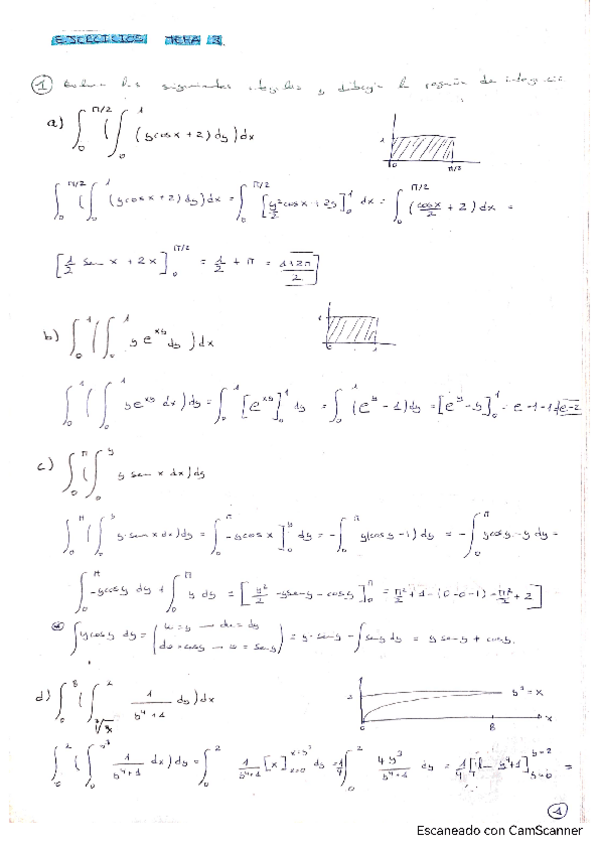 EJERCICIOS TEMA 3
① las siguientes integrales y dibuja la región de integración
a) ∫₀^{π/2} (∫₀^1 (ycosx + 2) dy) dx
1
0 π/2
∫₀^{π/2} (∫₀^1 (ycosx + 2) dy) dx = ∫₀^{π/2} [y²/2 cosx + 2y]₀^1 dx = ∫₀^{π/2} (cosx/2 + 2) dx =
[1/2 sen x + 2x]₀^{π/2} = 1/2 + π = (1+2π)/2
b) ∫₀^1 (∫₀^1 y e^{xy} dy) dx
∫₀^1 (∫₀^1 y e^{xy} dx) dy = ∫₀^1 [e^{xy}]₀^1 dy = ∫₀^1 (e^y - 1) dy = [e^y - y]₀^1 = e-1-1 = e-2
c) ∫₀^π (∫₀^y y sen x dx) dy
∫₀^π (∫₀^y y·sen x dx) dy = ∫₀^π -ycos x]₀^y dy = -∫₀^π y(cos y - 1) dy = -∫₀^π ycosy - y dy =
∫₀^π -ycosy dy + ∫₀^π y dy = [y²/2 - yseny - cosy]₀^π = π²/2 + 1 - (0-0-1) = π²/2 + 2
∫ycosy dy = (u = y → du = dy
dv = cosy → v = seny) = y·seny - ∫seny dy = y seny + cosy.
d) ∫₀^8 (∫_{∛x}^2 1/(y⁴+1) dy) dx
2
y³ = x
0 8 x
∫₀^2 (∫₀^{y³} 1/(y⁴+1) dx) dy = ∫₀^2 1/(y⁴+1) [x]_{x=0}^{x=y³} dy = 1/4 ∫₀^2 4y³/(y⁴+1) dy = 1/4 [ln y⁴+1]_{y=0}^{y=2} =
①
Escaneado con CamScanner